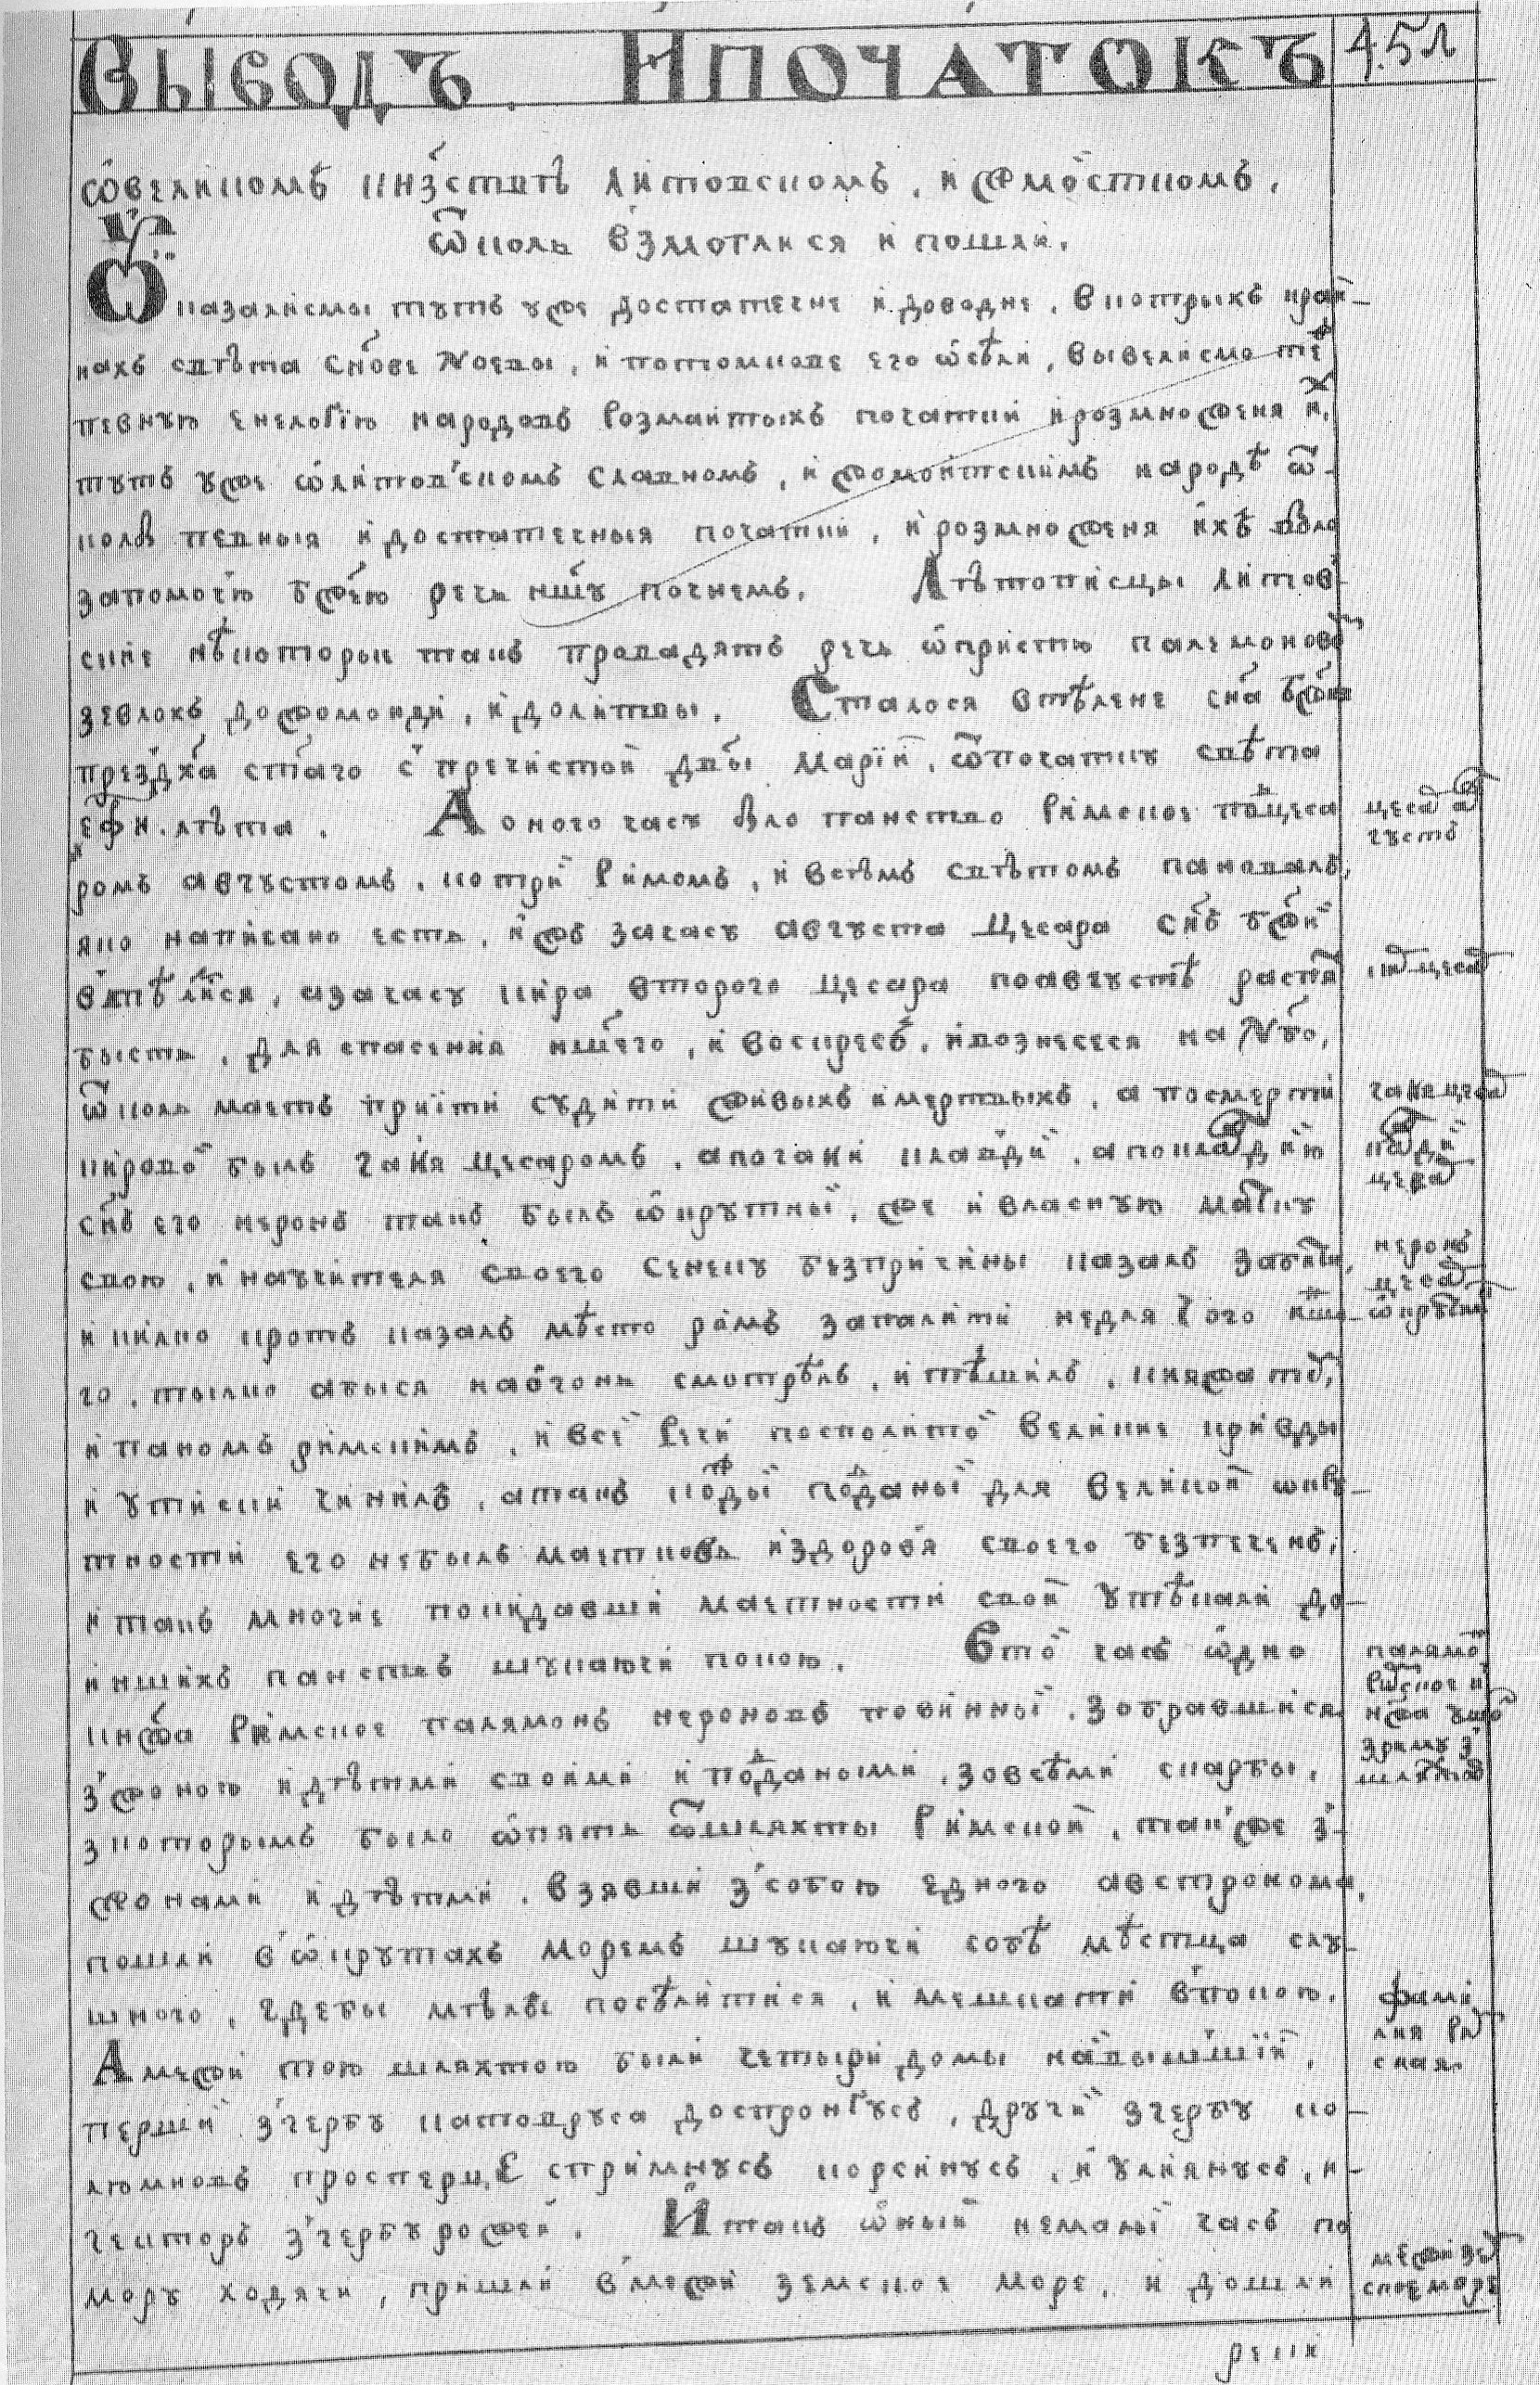 ВЫВОДЪ. ИПОЧАТОКЪ
ѡвеликомъ кнзствѣ литовскомъ, и жмоѥтскомъ,
ѿколь взмоглися и пошли.
Оказалисмы тутъ уже достатечне и доводне, в которыхъ краи-
нахъ свѣта снове Ноевы, и потомкове его ѡсѣли, вывелисмо теж
певную енелогїю народовъ розмаитыхъ початки и розмноженя их,
тутъ уже ѡлитовскомъ славномъ, и жомоитскимъ народѣ ѿ-
коль певныя и достатечныя початки, и розмноженя ихъ было
за помочю божею речь ншу почнемъ. Лѣтописцы литов-
скїе нѣкоторыи такъ провадятъ речь ѡпристю палемоновом
з влохъ до жомоиди, и до литвы. Сталося втѣлене сна божия
през дха стаго с пречистой двы Марїи, ѿ початку свѣта
҂ефк. лѣта. А оного часу было панство Римское под цеса
ромъ августомъ, который Римомъ, и всѣмъ свѣтомъ пановалъ,
яко написано естъ, ижъ за часу августа Цесара снъ божий
втѣлился, а за часу кира второго цесара по августѣ распят
бысть, для спасения ншего, и воскресъ, и вознесеся на Нбо,
ѿколь маетъ прїити судити живыхъ и мертвыхъ, а по смерти
кировой былъ гаия цесаромъ, а по гаии клавдий, а по клавдию
снъ его неронъ такъ былъ ѡкрутный, же и власную матку
свою, и научителя своего Сенеку без причины казалъ забити,
и килко кротъ казалъ мѣсто римъ запалити не для чого иншо-
го, тылко абыся на огонь смотрѣлъ, и тѣшилъ, княжатом,
и паномъ римскимъ, и всей Речи посполитой великие кривды
и утиски чинилъ, а такъ кождый подданый для великой окру-
тности его не былъ маетковъ и здоровя своего безпеченъ,
и такъ многие покидавши маетности свои утѣкали до
иншихъ панствъ шукаючи покою. Втой часъ ѡдно
кнжа Римское палямонъ нероновъ повинный, зобравшися
з жоною и дѣтми своими и поддаными, зо всѣми скарбы,
з которымъ было ѡпять ѿ шляхты Римской, также з
жонами и дѣтми, взявши з собою едного австронома,
пошли в ѡкрутахъ моремъ шукаючи собѣ мѣстца слу-
шного, гдебы мѣли поселитися, и мешкати в покою.
А межи тою шляхтою были четыри домы найвышшии,
перший з гербу катовруса доспронгусъ, другий з гербу ко-
люмновъ просперцЕ сприкмнусъ корсинусъ, и улиянусъ, и
гекторъ з гербу рожей. И такъ ѡный немалый часъ по
мору ходячи, пришли в межи земское море, и дошли
реки
4.5л
цесар ав
густъ
кир цесар
гаия цесар
клавдий
цесар
неронъ
цесар
ѡкрутный
палямон
Римское к
нжа ушол
з риму з
шляхтою
фами
лия Рим
ская.
межизем
ское море